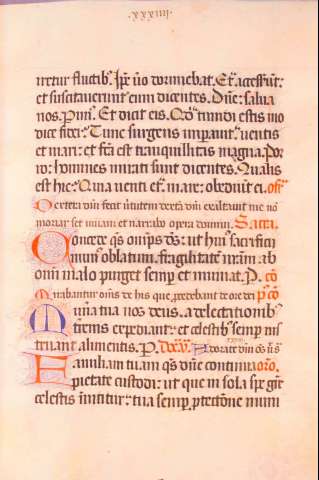 .xxxiiij.
retur fluctib;. Ip̄e ū̄o dormiebat. Et. accesserūt:
et suscitaverunt eum dicentes. Dn̄e: salva
nos. Perim̄. Et dicit eis. Qd̄ timidi estis mo
dice fidei: Tunc surgens imperavit. ventis
et mari: et fc̄a est tranquillitas magna. Por
ro: homines mirati sunt dicentes. Qualis
est hic: Quia venti et. mare: obediūt ei. off̄.
Dextera dn̄i fecit virtutem dextera dn̄i exaltavit me nō
moriar set vivam et narrabo opera domini. Sacra.
Concede q̄s om̄ps ds̄: ut hui' sacrifici
mun' oblatum. fragilitatē nr̄am ab
om̄i malo purget semp et muniat. P. cō
Mirabantur om̄s de his que procedebant de ore dei p' cō
Munera tua nos deus. a delectationib;
terrenis expediant: et celestib; semp ins
truant alimentis. P.
Adorate dn̄
Familiam tuam q̄s dn̄e continua oro.
pietate custodi: ut que in sola spe gr̄e
celestis innititur: tua semper protectione muni